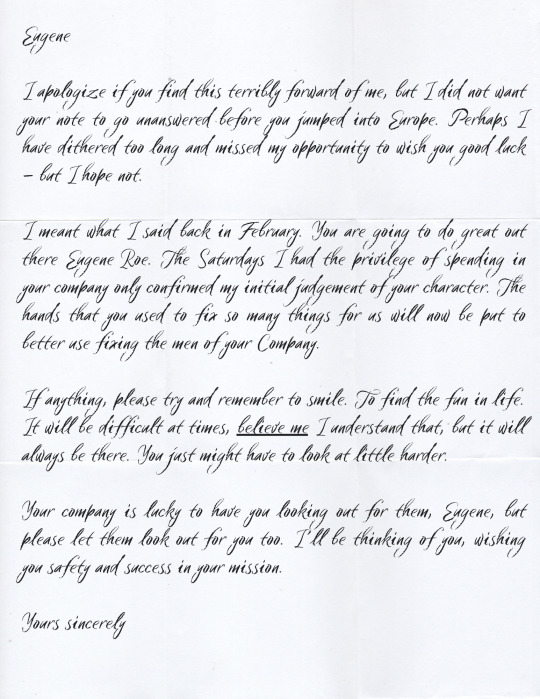 Eugene
I apologize if you find this terribly forward of me, but I did not want
your note to go unanswered before you jumped into Europe. Perhaps I
have dithered too long and missed my opportunity to wish you good luck
– but I hope not.
I meant what I said back in February. You are going to do great out
there Eugene Roe. The Saturdays I had the privilege of spending in
your company only confirmed my initial judgement of your character. The
hands that you used to fix so many things for us will now be put to
better use fixing the men of your Company.
If anything, please try and remember to smile. To find the fun in life.
It will be difficult at times, believe me I understand that, but it will
always be there. You just might have to look at little harder.
Your company is lucky to have you looking out for them, Eugene, but
please let them look out for you too. I'll be thinking of you, wishing
you safety and success in your mission.
Yours sincerely